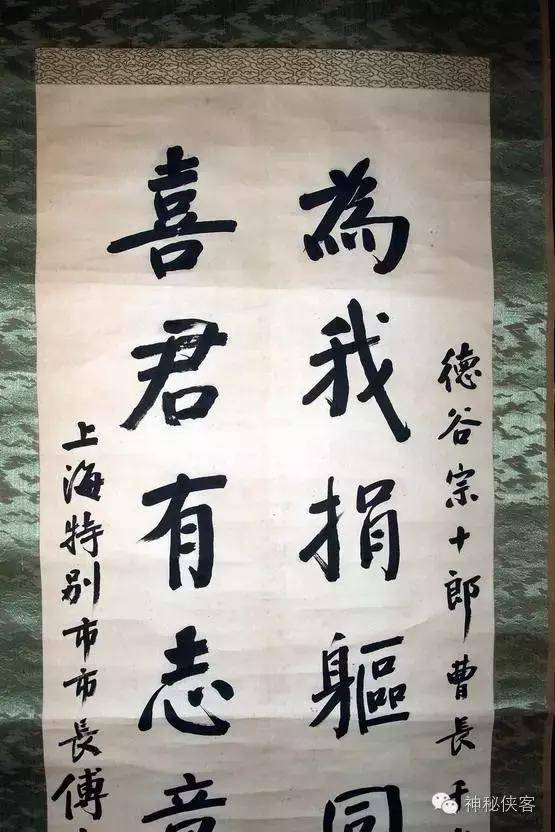 德谷宗十郎曹長
為我捐軀同
喜君有志
上海特別市市長傅
神秘侠客